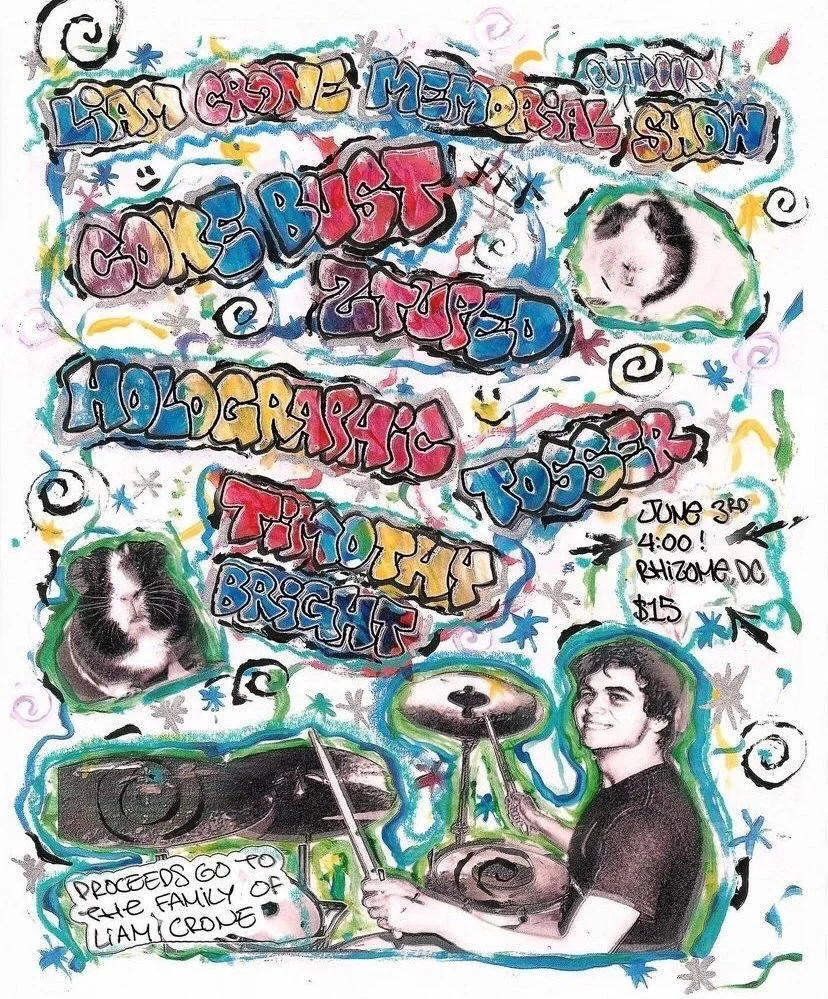 OUTDOOR
LIAM CRONE MEMORIAL SHOW
COKE BUST
XXX
ZTUPED
HOLOGRAPHIC
TOSSER
TIMOTHY
BRIGHT
JUNE 3RD
4:00!
RHIZOME, DC
$15
PROCEEDS GO TO
THE FAMILY OF
LIAM CRONE